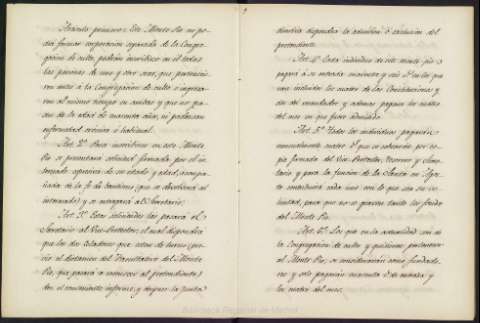 Artículo primero: Este Monte Pio no po-
dra formar corporacion separada de la Congre-
gacion de culto, podran inscribirse en él todas
las personas de uno y otro sexo, que pertenecie-
ren antes á la Congregacion de culto ó ingresa-
ren al mismo tiempo en ambas y que no pa-
sen de la edad de cuarenta años, ni padezcan
enfermedad crónica ó habitual.
Art. 2º. Para inscribirse en este Monte
Pio se presentara solicitud firmada por el in-
teresado espresiva de su estado y edad, acompa-
ñada de la fé de bautismo (que se devolverá al
interesado) y se entregará al Secretario.
Art. 3º. Estas solicitudes las pasará el
Secretario al Vice-Protector, el cual dispondrá
que los dos Celadores que esten de turno (pre-
vio el dictamen del Facultativo del Monte
Pio, que pasará á reconocer al pretendiente)
den el conveniente informe, y despues la Junta
directiva dispondrá la admision ó esclusion del
pretendiente.
Art. 4º. Cada individuo de este monte pio
pagará á su entrada cuarenta y seis rs. en los que
van incluidos los cuatro de las Constituciones y
dos del mandador y ademas pagará los cuatro
del mes en que fuere admitido.
Art. 5º. Todos los individuos pagarán
mensualmente cuatro rs. que se cobrarán por re-
cibo firmado del Vice-Protector, Tesorero y Secre-
tario y para la funcion de la Santa en Agos-
to contribuirá cada uno con lo que sea su vo-
luntad, para que no se graven tanto los fondos
del Monte Pio.
Art. 6º. Los que en la actualidad son de
la Congregacion de culto y quisieren pertenecer
al Monte Pio, se considerarán como fundado-
res y solo pagarán cuarenta rs. de entrada y
los cuatro del mes.
Biblioteca Regional de Madrid